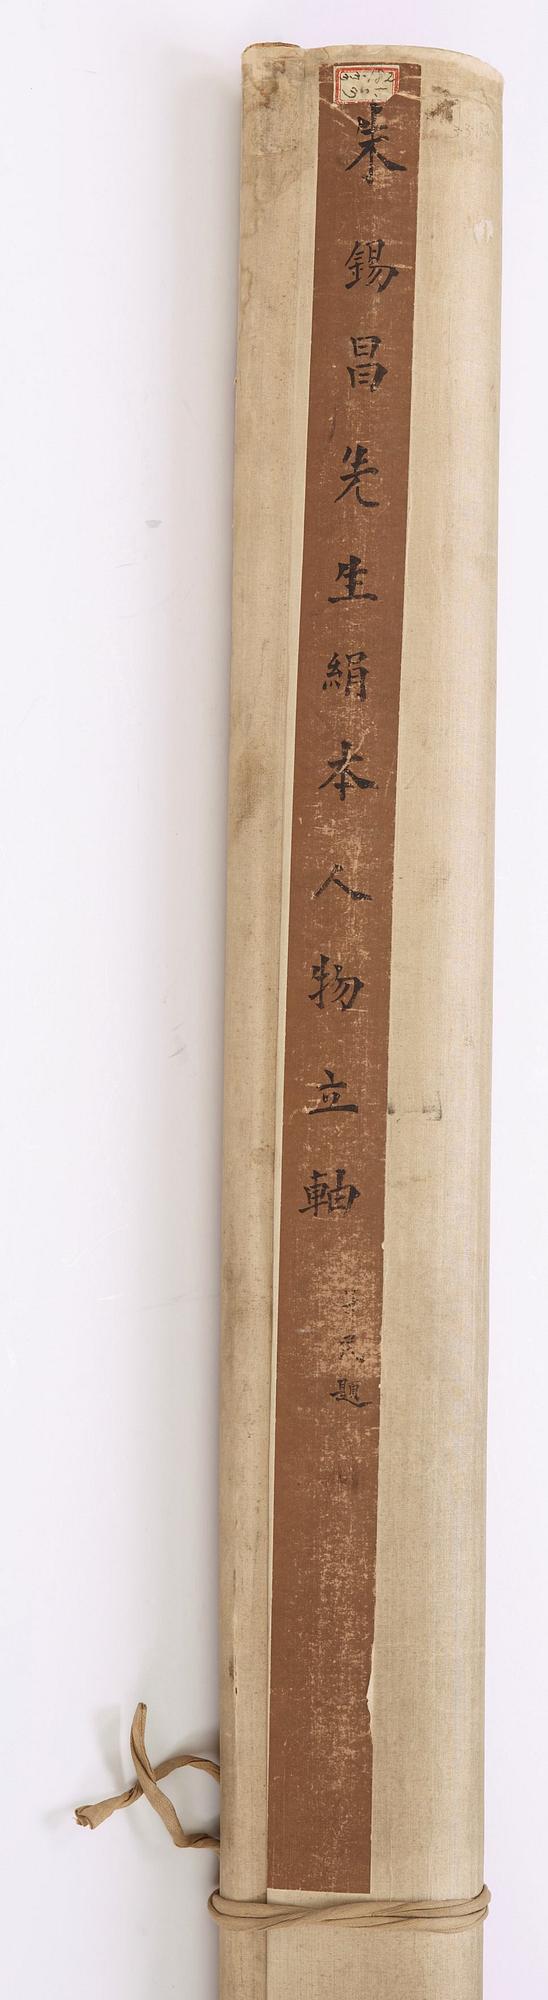 朱錫昌先生絹本人物立軸
題